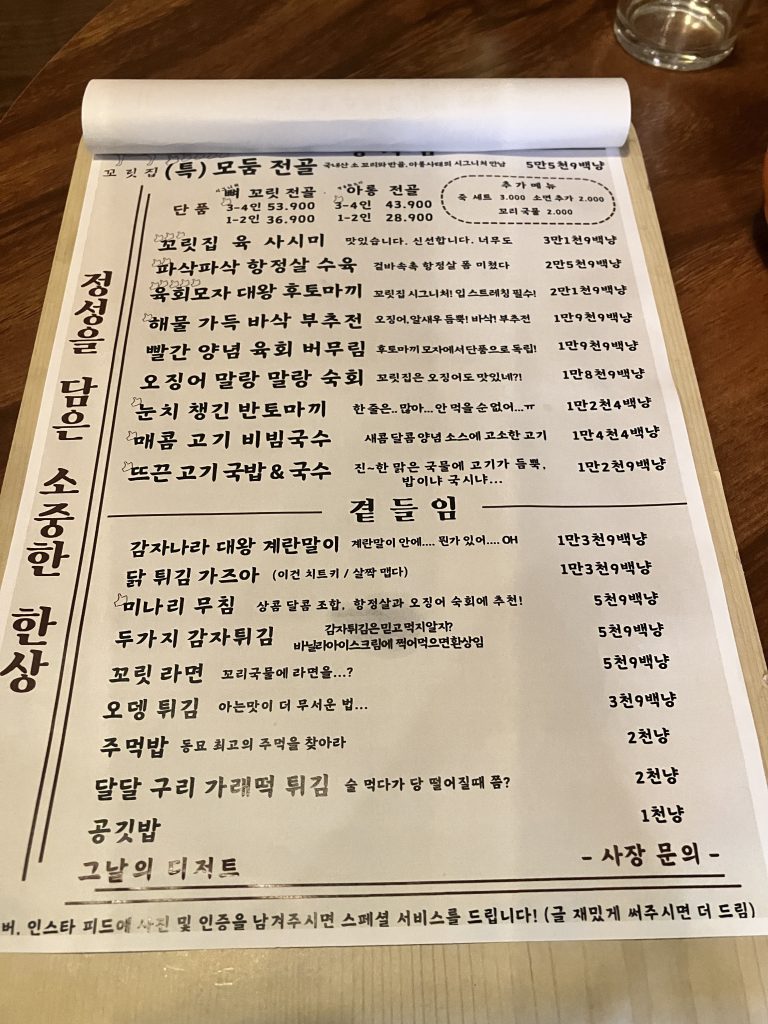 꼬릿집 (특) 모둠 전골 국내산 소 꼬리와 반골, 아롱사태의 시그니쳐 만남 5만5천9백냥
단품
뼈 꼬릿 전골
3-4인 53.900
1-2인 36.900
아롱 전골
3-4인 43.900
1-2인 28.900
추가메뉴
죽 세트 3.000 소면 추가 2.000
꼬리국물 2.000
꼬릿집 육 사시미 맛있습니다. 신선합니다. 너무도 3만1천9백냥
파삭파삭 항정살 수육 겉바속촉 항정살 폼 미쳤다 2만5천9백냥
육회모자 대왕 후토마끼 꼬릿집 시그니처! 입 스트레칭 필수! 2만1천9백냥
해물 가득 바삭 부추전 오징어,알새우 듬뿍! 바삭! 부추전 1만9천9백냥
빨간 양념 육회 버무림 후토마끼 모자에서 단품으로 독립! 1만9천9백냥
오징어 말랑 말랑 숙회 꼬릿집은 오징어도 맛있네?! 1만8천9백냥
눈치 챙긴 반토마끼 한 줄은.. 많아... 안 먹을 순 없어...ㅠ 1만2천4백냥
매콤 고기 비빔국수 새콤 달콤 양념 소스에 고소한 고기 1만4천4백냥
뜨끈 고기 국밥 & 국수 진~한 맑은 국물에 고기가 듬뿍, 1만2천9백냥
밥이냐 국시냐...
곁들임
감자나라 대왕 계란말이 계란말이 안에.... 뭔가 있어.... OH 1만3천9백냥
닭 튀김 가즈아 (이건 치트키 / 살짝 맵다) 1만3천9백냥
미나리 무침 상콤 달콤 조합, 항정살과 오징어 숙회에 추천! 5천9백냥
두가지 감자튀김 감자튀김은 믿고 먹지알지? 5천9백냥
바닐라아이스크림에 찍어먹으면환상임
꼬릿 라면 꼬리국물에 라면을...? 5천9백냥
오뎅 튀김 아는맛이 더 무서운 법... 3천9백냥
주먹밥 동묘 최고의 주먹을 찾아라 2천냥
달달 구리 가래떡 튀김 술 먹다가 당 떨어질때 쯤? 2천냥
공깃밥 1천냥
그날의 디저트 - 사장 문의 -
버, 인스타 피드에 사진 및 인증을 남겨주시면 스페셜 서비스를 드립니다! (글 재밌게 써주시면 더 드림)
정성을 담은 소중한 한상